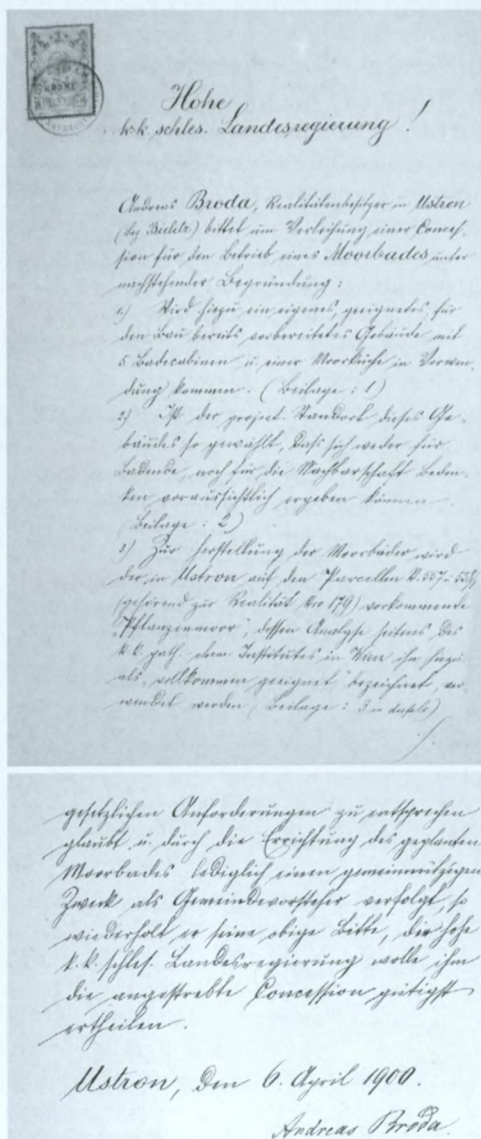 KRONE
Hohe
k.k. schles. Landesregierung!
Andreas Broda, Realitätenbesitzer in Ustron
(bez Bielitz) bittet um Verleihung einer Conces-
sion für den Betrieb eines Moorbades unter
nachstehender Begründung:
1.) Wird hiezu ein eigenes, geeignetes, für
den Bau bereits vorbereitetes Gebäude mit
5 Badecabinen u. einer Moorküche in Verwen-
dung kommen. (Beilage: 1)
2) Ist der project. Standort dieses Ge-
bäudes so gewählt, dass sich weder für
Badende, noch für die Nachbarschaft Beden-
ken voraussichtlich ergeben können
(Beilage: 2)
3) Zur Herstellung der Moorbäder wird
der in Ustron auf den Parcellen N. 557 u.
(gehörend zur Realität Nro 179) vorkommende
"Pflanzenmoor", dessen Analyse seitens des
k.k. path. chem. Institutes in Wien ihn hiezu
als "vollkommen geeignet" bezeichnet, ver-
wendet werden (Beilage: 3
gesetzlichen Anforderungen zu entsprechen
glaubt u. durch die Errichtung des geplanten
Moorbades lediglich einen gemeinnützigen
Zweck als Gemeindevorsteher verfolgt, so
wiederholt er seine obige Bitte, die hohe
k.k. schles. Landesregierung wolle ihm
die angestrebte Concession gütigst
ertheilen.
Ustron, den 6. April 1900.
Andreas Broda.